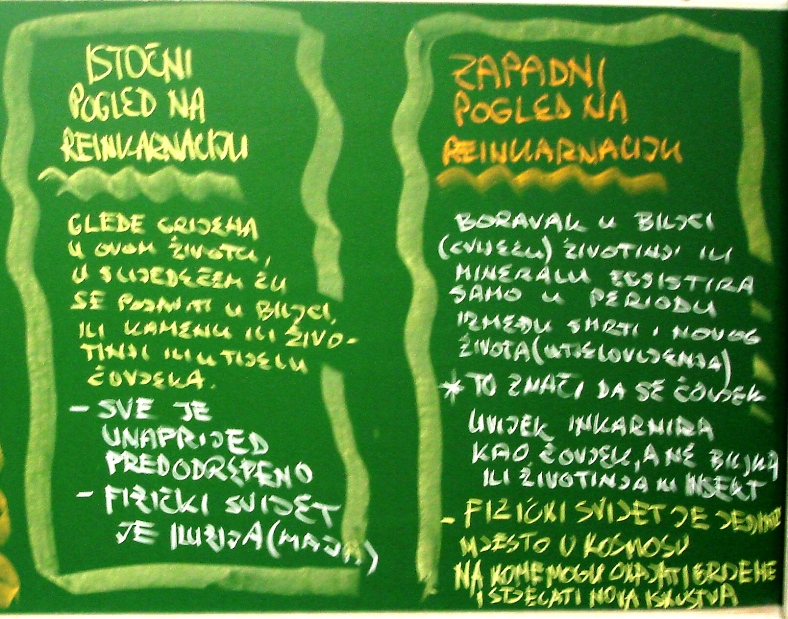 ISTOČNI
POGLED NA
REINKARNACIJU
GLEDE GRIJEHA
U OVOM ŽIVOTU,
U SLIJEDEĆEM ĆU
SE POJAVITI U BILJCI,
ILI KAMENU ILI ŽIVO-
TINJI ILI U TIJELU
ČOVJEKA.
- SVE JE
UNAPRIJED
PREDODREĐENO
- FIZIČKI SVIJET
JE ILUZIJA (MAJA)
ZAPADNI
POGLED NA
REINKARNACIJU
BORAVAK U BILJCI
(CVIJEĆU) ŽIVOTINJI ILI
MINERALU EGSISTIRA
SAMO U PERIODU
IZMEĐU SMRTI I NOVOG
ŽIVOTA (UTJELOVLJENJA)
* TO ZNAČI DA SE ČOVJEK
UVIJEK INKARNIRA
KAO ČOVJEK, A NE BILJKA
ILI ŽIVOTINJA ILI INSEKT
- FIZIČKI SVIJET JE JEDINO
MJESTO U KOSMOSU
NA KOME MOGU OKAJATI GRIJEHE
I STJECATI NOVA ISKUSTVA